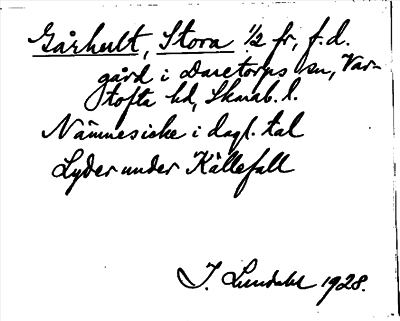 Gårhult, Stora 1/2 fr, f.d.
gård i Daretorps sn, Var-
tofta hd, Skarab. l.
Nämnes icke i dagl. tal
Lyder under Källefall
I. Lundahl 1928.